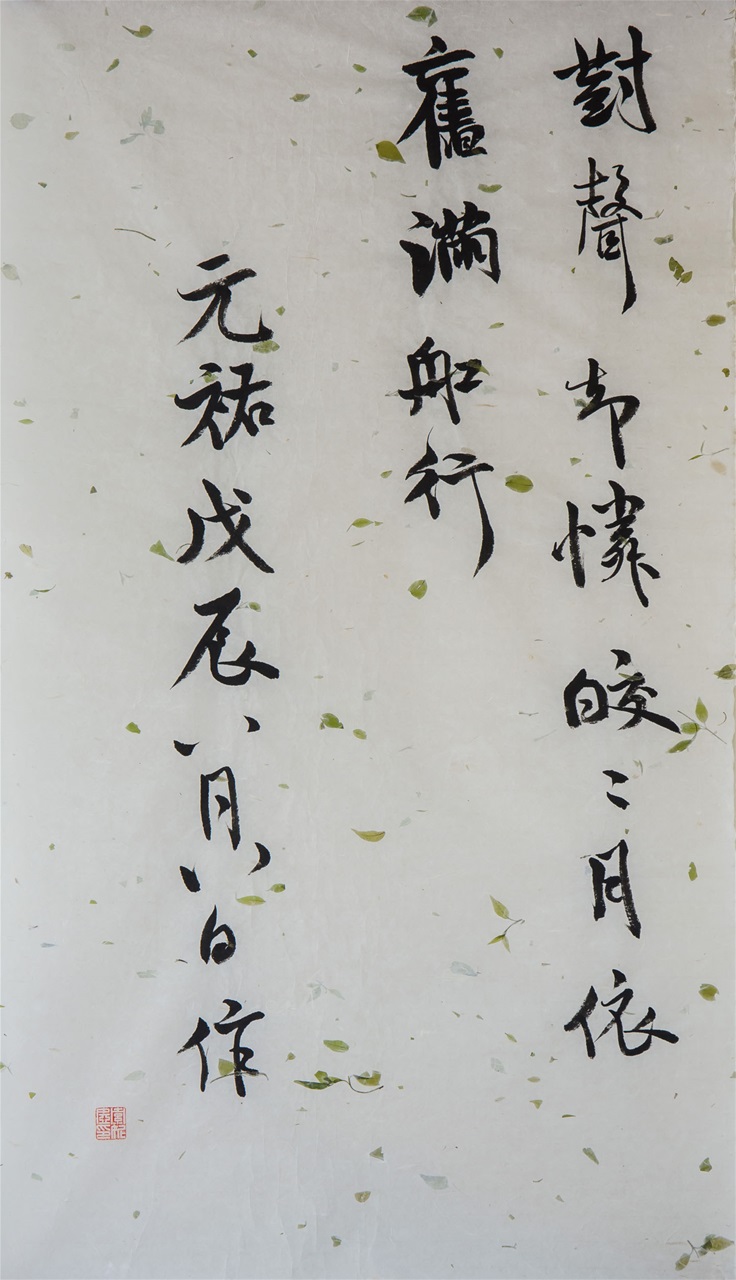 對聲却憐皎二月依
舊滿船行
元祐戊辰八月八日作